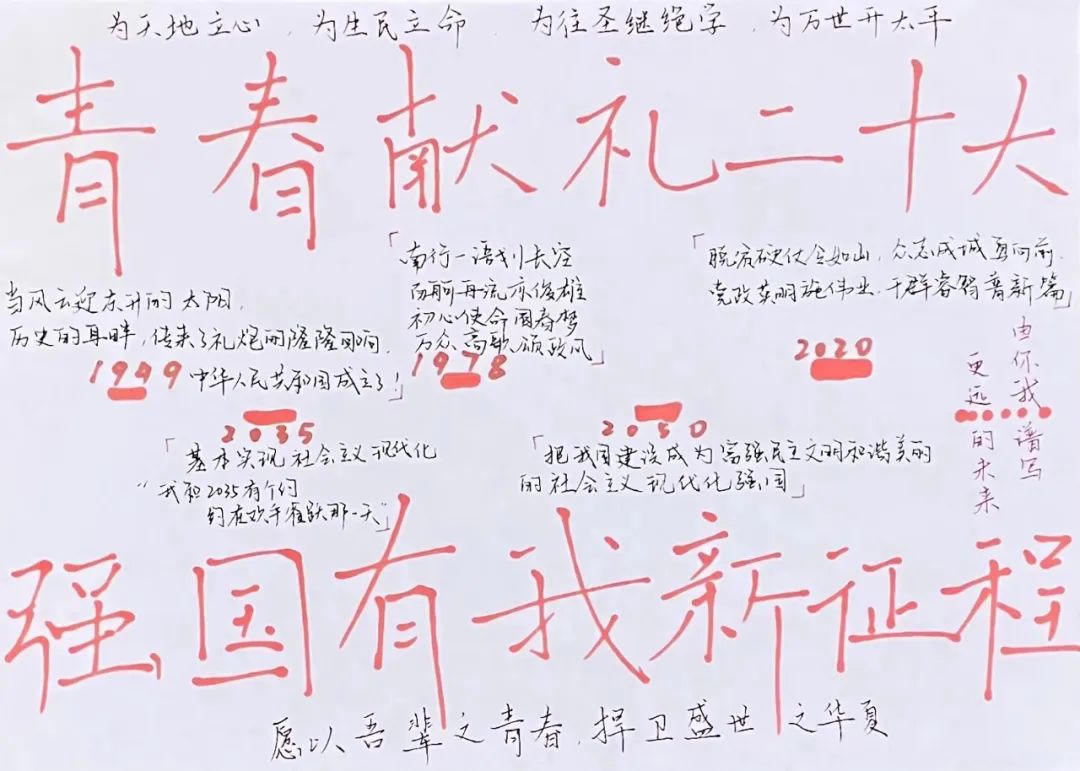 为天地立心，为生民立命，为往圣继绝学，为万世开太平
青春献礼二十大
当风云迎东升的太阳，
历史的耳畔，传来了礼炮的隆隆回响，
1949 中华人民共和国成立了！」
「南行一语划长空
历久再流亦俊雄
初心使命圆春梦
万众高歌颂政风」
1978
「脱贫硬仗令如山，众志成城勇向前，
党政英明施伟业，干群睿智著新篇」
2020
由你我谱写
更远的未来
2035
「基本实现社会主义现代化
“我和2035有个约
约在欢呼雀跃那一天”」
2050
「把我国建设成为富强民主文明和谐美丽
的社会主义现代化强国」
强国有我新征程
愿以吾辈之青春，捍卫盛世之华夏